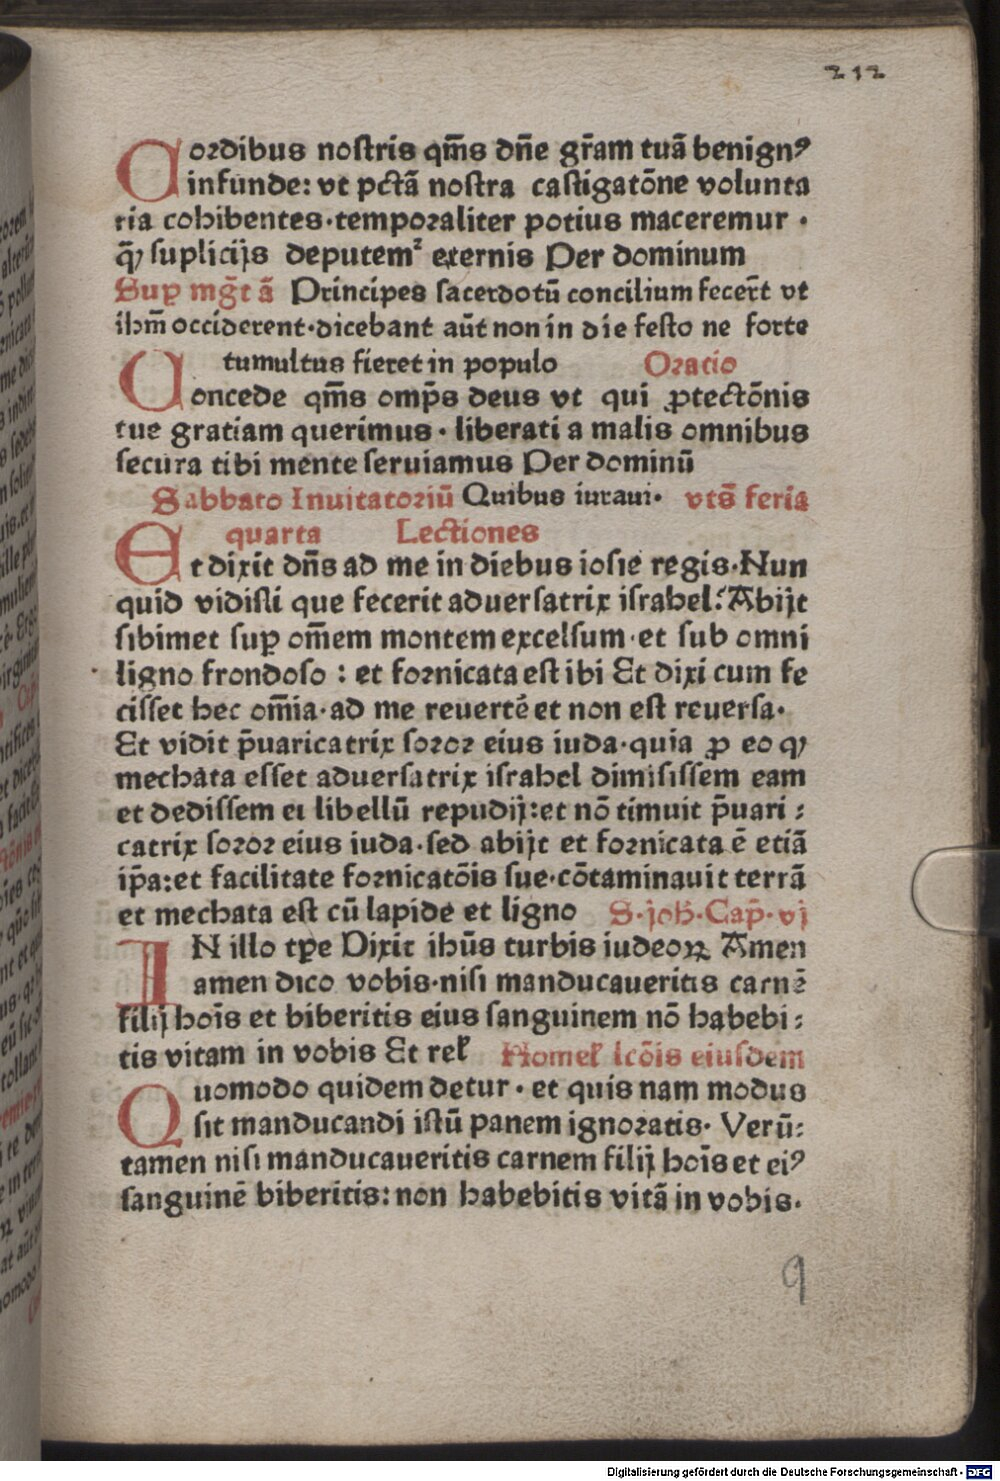 212
Cordibus nostris qm̄s dn̄e gr̄am tuā benignꝰ
infunde: vt pctā nostra castigatōne volunta
ria cohibentes·temporaliter potius maceremur ·
q̄ꝫ suplicijs deputemᷣ eternis Per dominum
Suꝑ mḡt ā Principes sacerdotū concilium fecer̄t vt
ihm̄ occiderent·dicebant aūt non in die festo ne forte
tumultus fieret in populo Oratio
Concede qm̄s omp̄s deus vt qui ꝓtectōnis
tue gratiam querimus · liberati a malis omnibus
secura tibi mente seruiamus Per dominū
Sabbato Inuitatoriū Quibus iuraui· vts̄ feria
quarta Lectiones
Et dixit dn̄s ad me in diebus iosie regis·Nun
quid vidisti que fecerit aduersatrix israhel? Abijt
sibimet suꝑ om̄em montem excelsum·et sub omni
ligno frondoso : et fornicata est ibi Et dixi cum fe
cisset hec om̄ia·ad me reuertē et non est reuersa·
Et vidit p̄uaricatrix soror eius iuda·quia ꝓ eo qꝫ
mechata esset aduersatrix israhel dimisissem eam
et dedissem ei libellū repudij:et nō timuit p̄uari :
catrix soror eius iuda·sed abijt et fornicata ē etiā
ip̄a:et facilitate fornicatōis sue·cōtaminauit terrā
et mechata est cū lapide et ligno S·joh̄·Cap̄·vj
IN illo tp̄e Dixit ihūs turbis iudeoꝝ Amen
amen dico vobis·nisi manducaueritis carnē
filij hoīs et biberitis eius sanguinem nō habebi :
tis vitam in vobis Et rel̄ Homel̄ lcōis eiusdem
Quomodo quidem detur · et quis nam modus
sit manducandi istū panem ignoratis· Verū:
tamen nisi manducaueritis carnem filij hoīs et eiꝰ
sanguinē biberitis:non habebitis vitā in vobis·
9
Digitalisierung gefördert durch die Deutsche Forschungsgemeinschaft - DFG